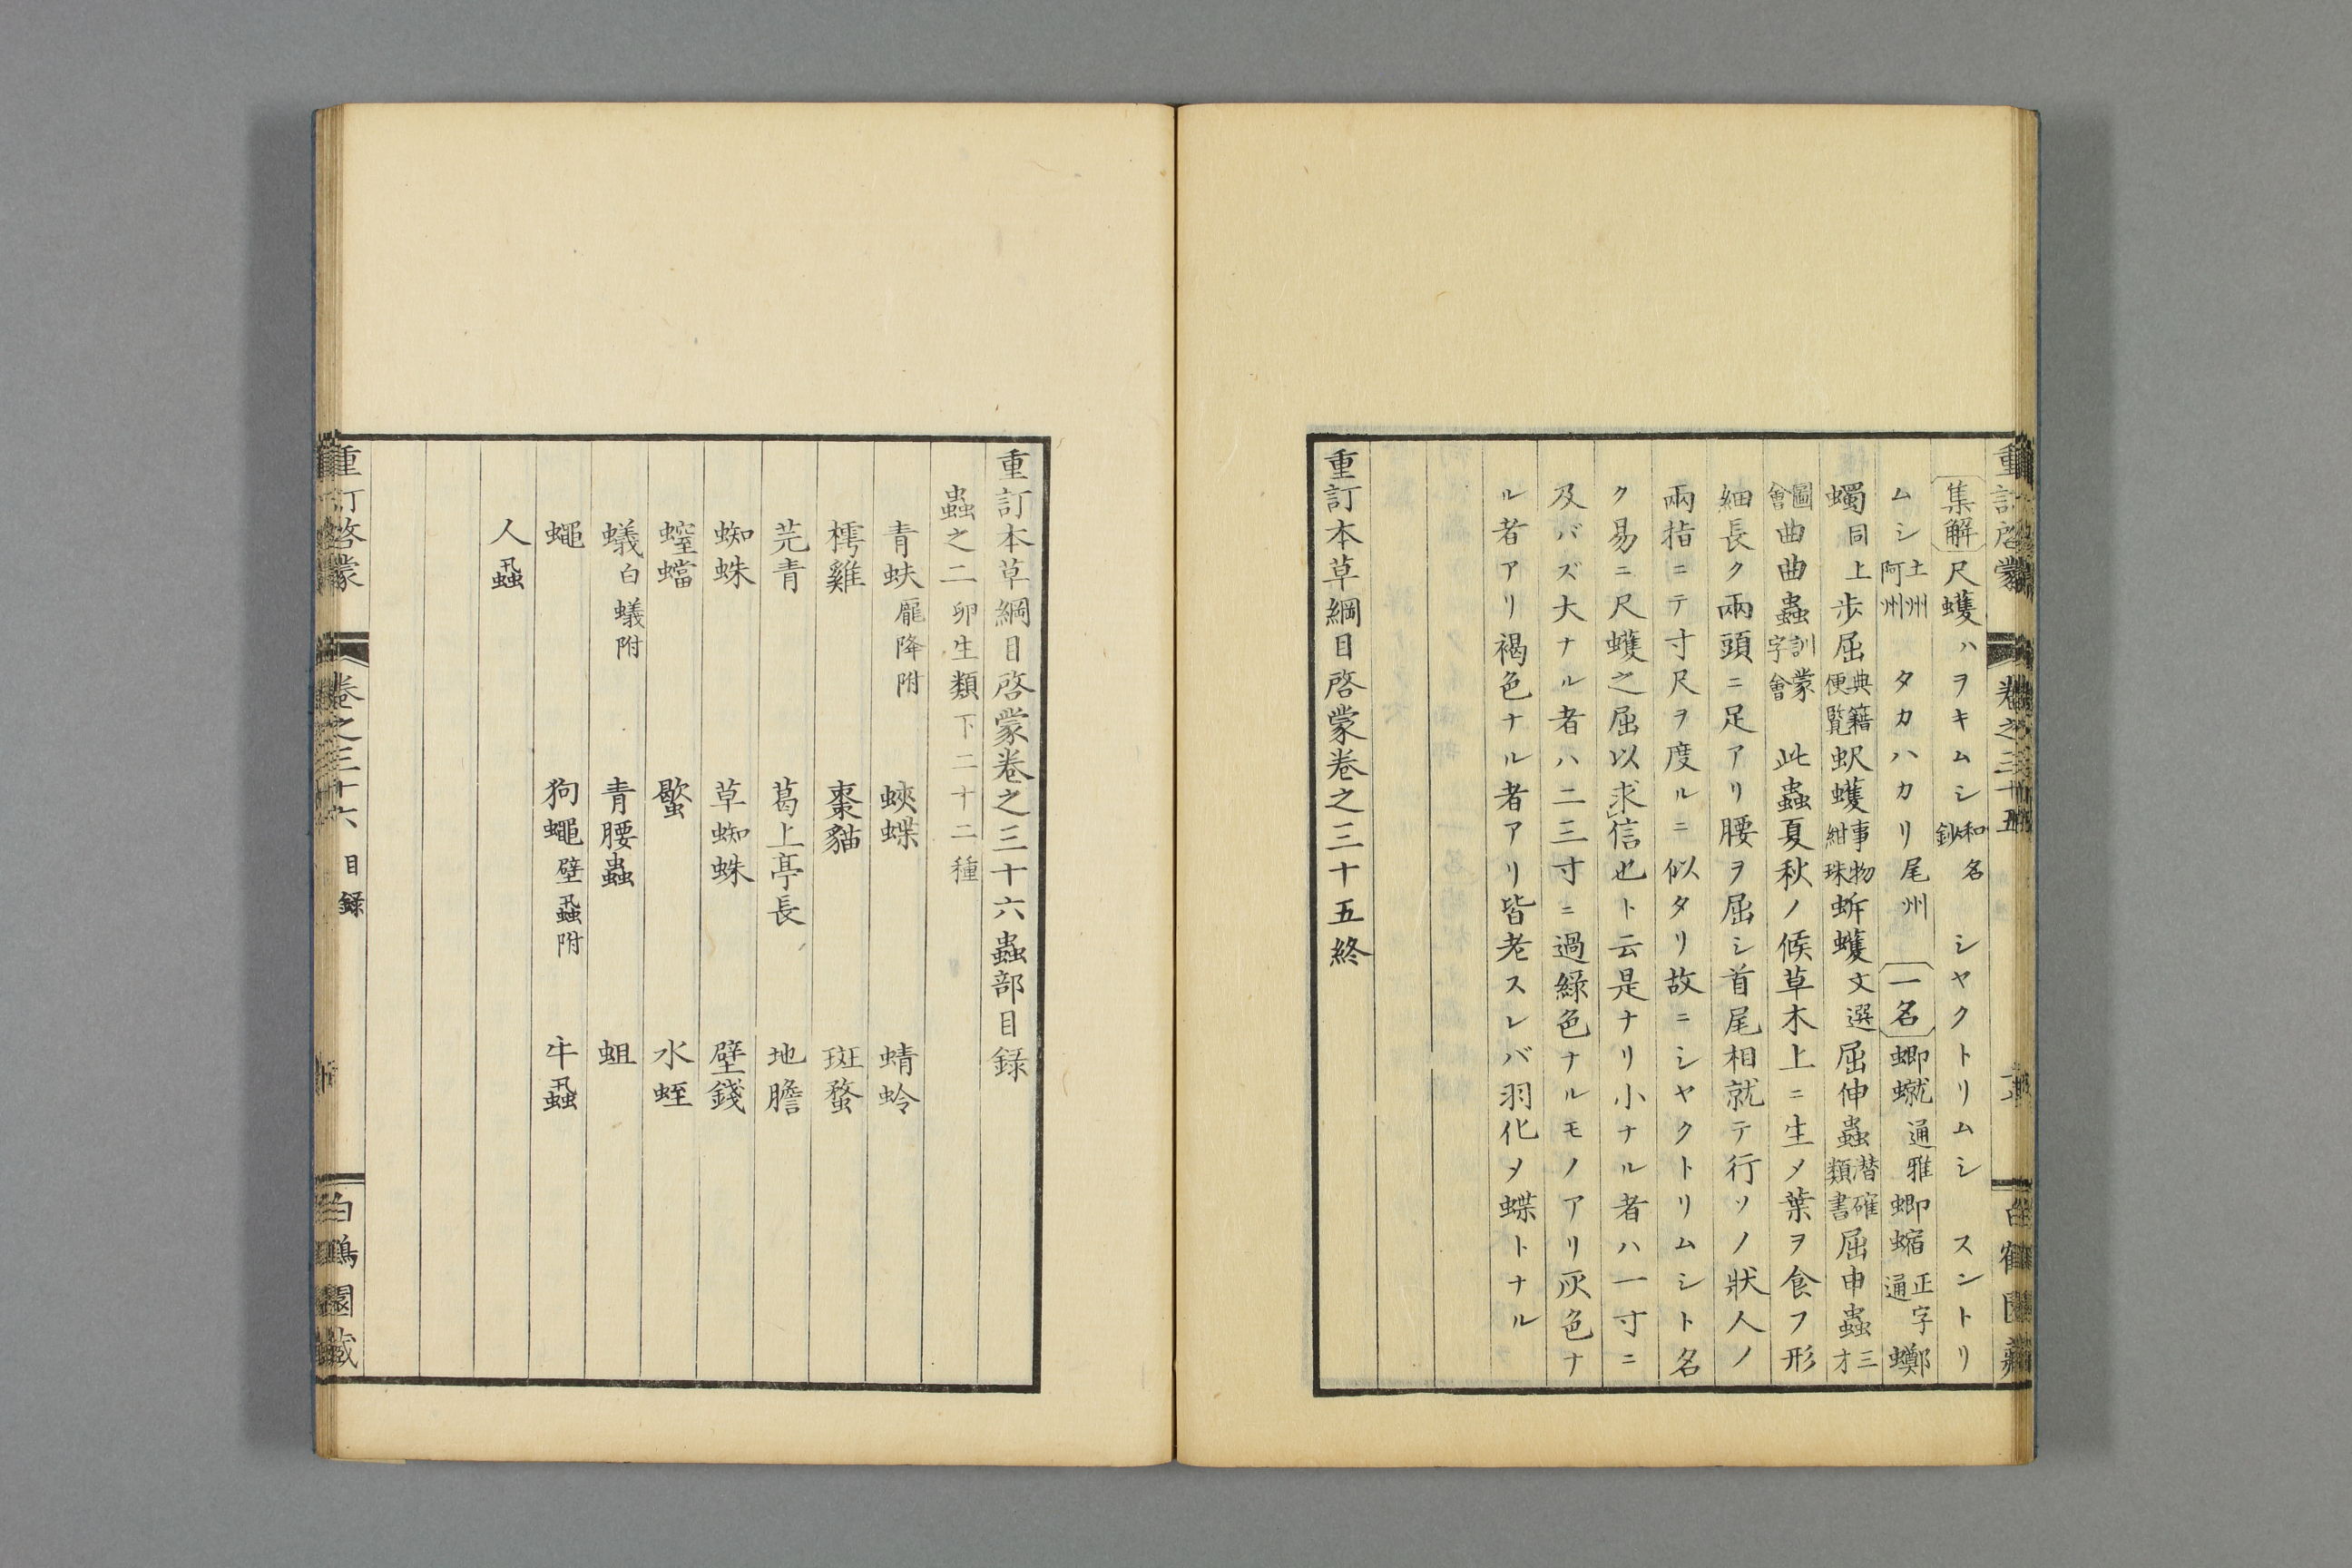 集解尺蠖ハヲキムシ和名鈔 シヤクトリムシ スントリ
ムシ土州阿州 タカハカリ尾州 一名蝍蠀通雅蝍蝫正字通䗣
蠋同上歩屈典籍便覧蚇蠖事物紺珠蚸蠖文選屈伸蟲潜確類書屈申蟲三才
圖會曲曲蟲訓蒙字會 此蟲夏秋ノ候草木上ニ生〆葉ヲ食フ形
細長ク兩頭ニ足アリ腰ヲ屈シ首尾相就テ行ソノ狀人ノ
兩指ニテ寸尺ヲ度ルニ似タリ故ニシヤクトリムシト名
ク易ニ尺蠖之屈以求信也ト云是ナリ小ナル者ハ一寸ニ
及バズ大ナル者ハ二三寸ニ過綠色ナルモノアリ灰色ナ
ル者アリ褐色ナル者アリ皆老スレバ羽化〆蝶トナル
重訂本草綱目啓蒙卷之三十五終
重訂本草綱目啓蒙卷之三十六蟲部目録
蟲之二卵生類下二十二種
青蚨龐降附 蛺蝶 蜻蛉
樗雞 棗貓 斑蝥
芫青 葛上亭長 地膽
蜘蛛 草蜘蛛 壁錢
螲蟷 蠍 水蛭
蟻白蟻附 青腰蟲 蛆
蠅 狗蠅壁蝨附 牛蝨
人蝨
重訂啓蒙 卷之三十六 目録 白鶴園藏